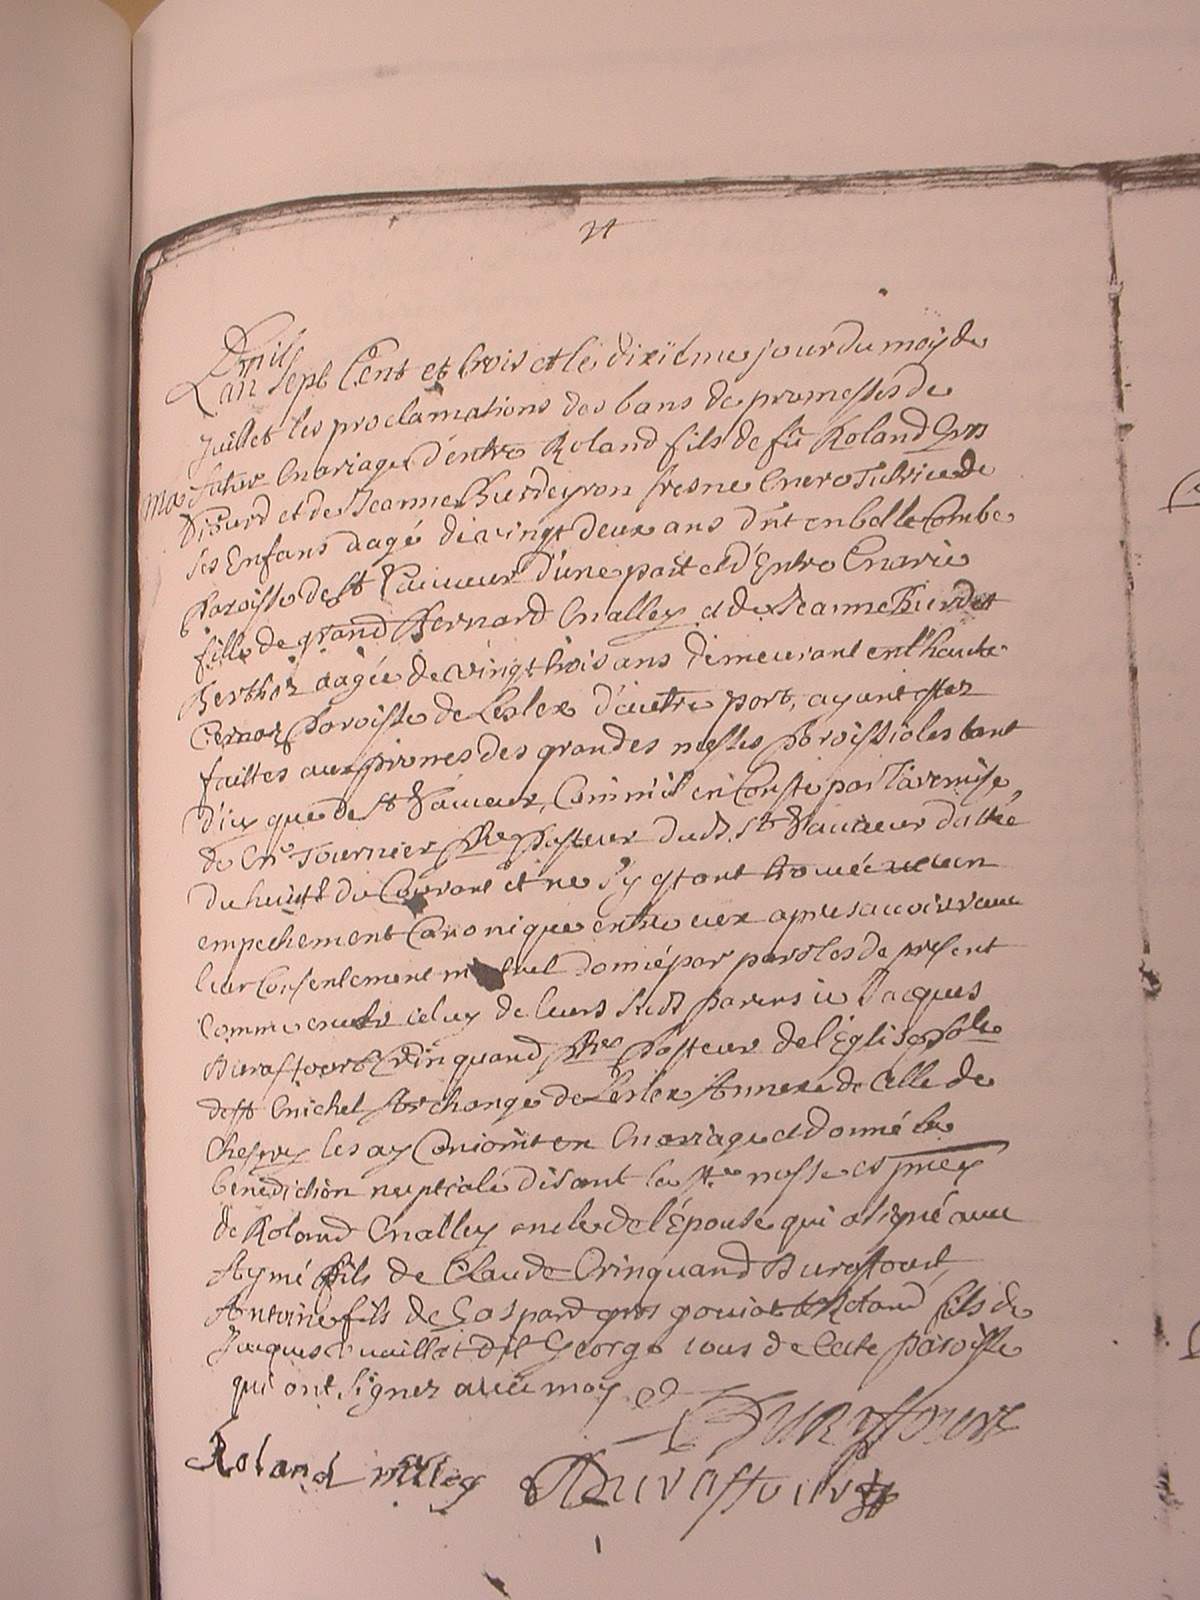 24
mil
L'an sept Cent et trois et le dixième jour du mois de
Juillet les proclamations des bans de promesses de
futur mariage d'entre Roland fils de fû Roland Gros
et de Jeanne Burdeyron sa mere Tutrice de
ses Enfans aagé de vingt deux ans d'nt en belle Combe
paroisse de st Sauueur d'une part et d'Entre Marie
fille de grand Bernard Malley et de Jeanne Burdet
aagée de vingt trois ans demeurant en l'haute
paroisse de Leslex d'autre part, ayant estez
faittes aux prones des grandes messes paroissiales tant
d'icy que de st Sauueur, Comm'il en Conste par la remise
de mr Tournier pbre pasteur dudt st Sauueur dattée
du huitt du Courant et ne s'y estant trouué aucun
empechement Canonique entre eux apres auoir receu
leur Consentement mutuel donné par paroles de present
comme aussy celuy de leurs susdt parens ie Jacques
Duraffourt Crinquand pbre pasteur de l'Eglise
de st Michel Archange de Leslex Annexe de Celle de
Chesery les ay Conioint en mariage et donné la
benediction nuptiale disant la ste messe es pnces
de Roland Malley oncle de l'Epouse qui a signé auec
Aymé fils de Claude Crinquand Duraffourt,
Antoine fils de Gaspard gros gouiat et Roland fils de
Jacques dit George tous de Cette paroisse
qui ont signez auec moy
Duraffourt
Roland mlley Duraffourt